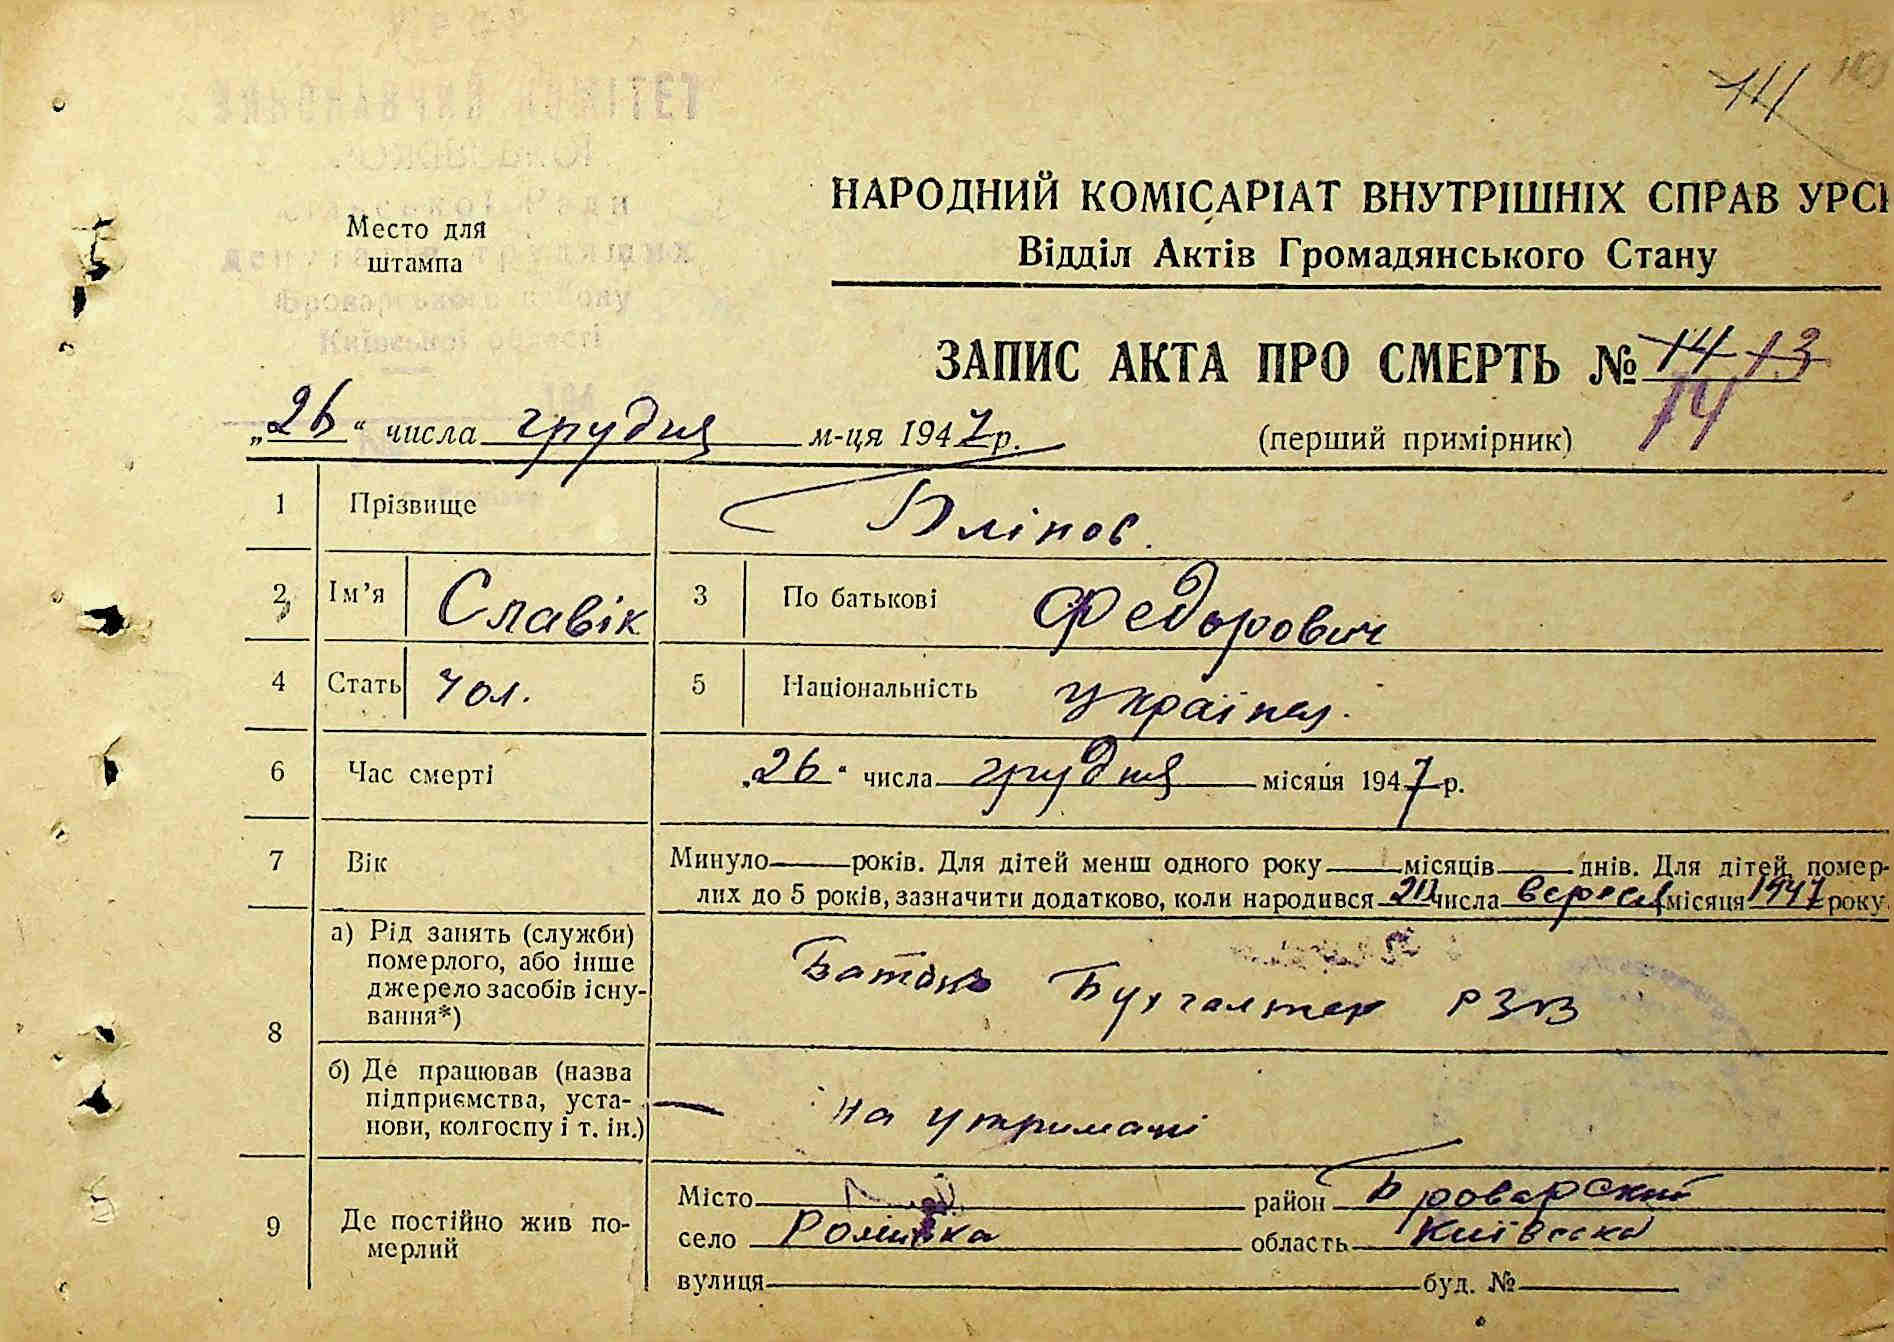 111
ВИКОНАВЧИЙ КОМІТЕТ
Ради
депутатів трудящих
Броварського району
Київської області
194
Место для
штампа
НАРОДНИЙ КОМІСАРІАТ ВНУТРІШНІХ СПРАВ УРСР
Відділ Актів Громадянського Стану
ЗАПИС АКТА ПРО СМЕРТЬ № 14 13
14
„26“ числа грудня м-ця 1947 р.
(перший примірник)
1 Прізвище Бліпов.
2 Ім’я Славік 3 По батькові Федорович
4 Стать чол. 5 Національність українец.
6 Час смерті „26“ числа грудня місяця 1947 р.
7 Вік Минуло — років. Для дітей менш одного року — місяців — днів. Для дітей, помер-
лих до 5 років, зазначити додатково, коли народився 20 числа вересня місяця 1947 року
8 а) Рід занять (служби)
померлого, або інше
джерело засобів існу-
вання*)
Батько Бухгалтер РЗВ
б) Де працював (назва
підприємства, уста-
нови, колгоспу і т. ін.)
— на утримані
9 Де постійно жив по-
мерлий
Місто район Броварский
село область Київска
вулиця буд. №